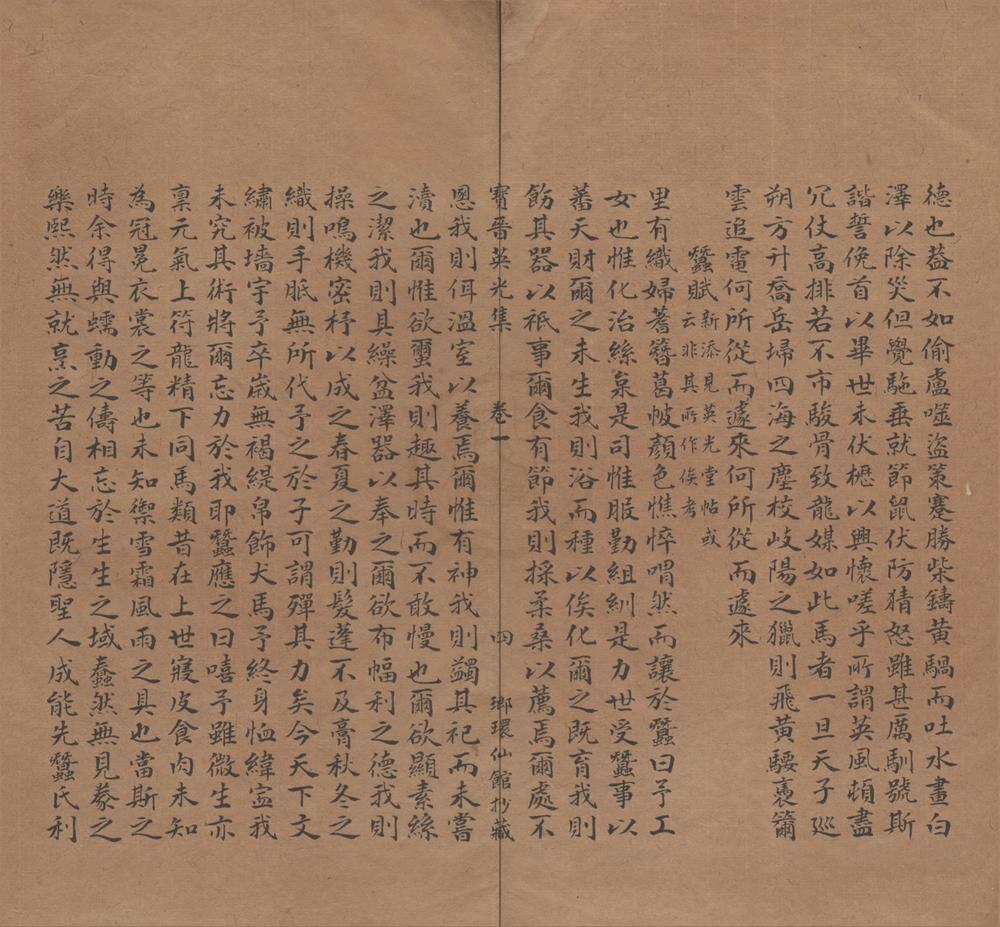 德也蓋不如偷盧噬盜策蹇勝柴鑄黃騧而吐水畫白
澤以除災但覺駞垂就節鼠伏防猜怒雖甚厲馴號斯
諧誓俛首以畢世未伏櫪以興懷嗟乎所謂英風頓盡
冗仗高排若不市駿骨致龍媒如此馬者一旦天子巡
朔方升喬岳埽四海之塵校岐陽之獵則飛黃騕褭籋
雲追電何所從而遽來何所從而遽來
蠶賦新添見英光堂帖或
云非其所作俟考
里有織婦蓍簪葛帔顏色憔悴喟然而讓於蠶曰予工
女也惟化治絲枲是司惟服勤組紃是力世受蠶事以
蕃天財爾之未生我則浴而種以俟化爾之既育我則
飭其器以祇事爾食有節我則採柔桑以薦焉爾處不
寶晉英光集 卷一 四 瑯環仙館抄藏
慁我則佴溫室以養焉爾惟有神我則蠲其祀而未嘗
瀆也爾惟欲璽我則趣其時而不敢慢也爾欲顯素絲
之潔我則具繰盆澤器以奉之爾欲布幅利之德我則
操鳴機密杼以成之春夏之勤則髮蓬不及膏秋冬之
織則手胝無所代予之於子可謂殫其力矣今天下文
繡被墻宇予卒歲無褐緹帛飾犬馬予終身恤緯寍我
未究其術將爾忘力於我耶蠶應之曰嘻予雖微生亦
稟元氣上符龍精下同馬類昔在上世寢皮食肉未知
為冠冕衣裳之等也未知禦雪霜風雨之具也當斯之
時余得與蠕動之儔相忘於生生之域蠢然無見豢之
樂熙然無就烹之苦自大道既隱聖人成能先蠶氏利